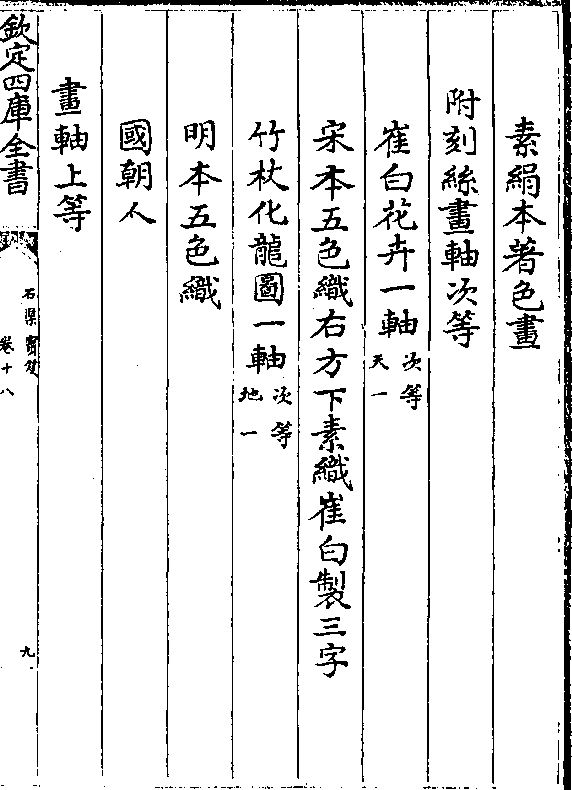 素絹本著色畫
附刻絲畫軸次等
崔白花卉一軸次等天一
宋本五色織右方下素織崔白製三字
竹杖化龍圖一軸次等地一
明本五色織
國朝人
畫軸上等
欽定四庫全書
石渠寶笈
卷十八
九